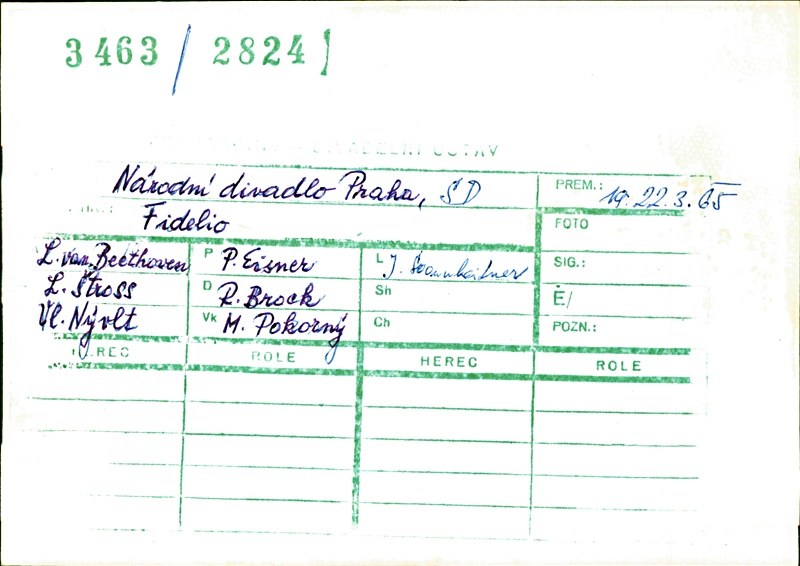 3463 / 2824 )
Národní divadlo Praha, SD
PREM.: 19. 22.3.65
Fidelio
FOTO
L. van Beethoven P P. Eisner L J.
SIG.:
L. Štross D R. Brock Sh
Ė/
Vl. Nývlt Vk M. Pokorný Ch
POZN.:
REC ROLE HEREC ROLE